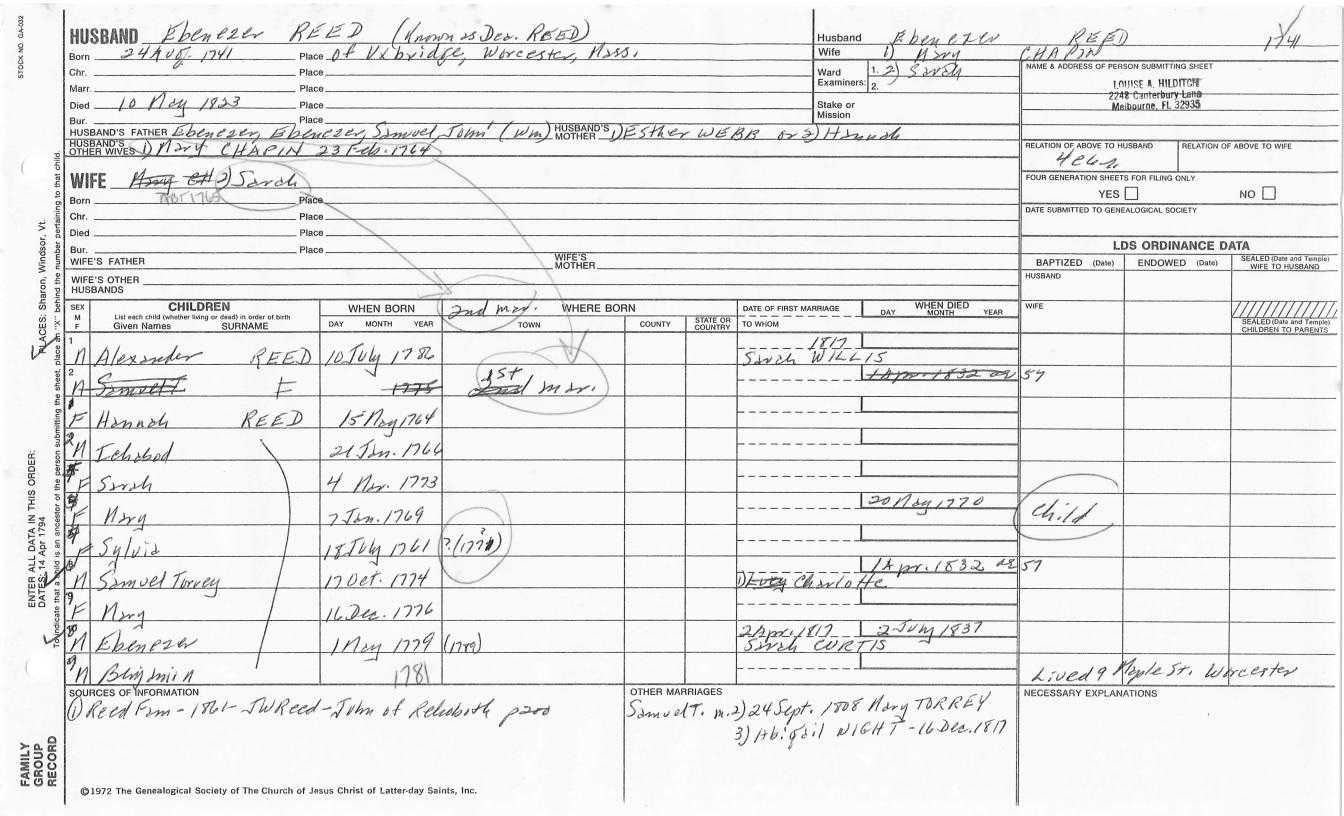 STOCK NO. GA-002
HUSBAND Ebenezer REED (Known as Dea. REED)
Born 24 Aug. 1741 Place of Uxbridge, Worcester, Mass.
Chr. Place
Marr. Place
Died 10 May 1823 Place
Bur. Place
HUSBAND'S FATHER Ebenezer, Ebenezer, Samuel, John' (Wm) HUSBAND'S MOTHER 1) Esther WEBB or 2) Hannah
HUSBAND'S OTHER WIVES 1) Mary CHAPIN 23 Feb. 1764
WIFE Mary CH 2) Sarah
ABT 1765
Born Place
Chr. Place
Died Place
Bur. Place
WIFE'S FATHER WIFE'S MOTHER
WIFE'S OTHER HUSBANDS
Husband Ebenezer REED 1741
Wife 1) Mary CHAPIN
Ward Examiners: 1. 2) Sarah
2.
Stake or Mission
NAME & ADDRESS OF PERSON SUBMITTING SHEET
LOUISE A. HILDITCH
2248 Canterbury Lane
Melbourne, FL 32935
RELATION OF ABOVE TO HUSBAND RELATION OF ABOVE TO WIFE
FOUR GENERATION SHEETS FOR FILING ONLY
YES NO
DATE SUBMITTED TO GENEALOGICAL SOCIETY
LDS ORDINANCE DATA
BAPTIZED (Date) ENDOWED (Date) SEALED (Date and Temple) WIFE TO HUSBAND
HUSBAND
WIFE
SEALED (Date and Temple) CHILDREN TO PARENTS
SEX M F
CHILDREN
List each child (whether living or dead) in order of birth
Given Names SURNAME
WHEN BORN
DAY MONTH YEAR
2nd mar.
WHERE BORN
TOWN COUNTY STATE OR COUNTRY
DATE OF FIRST MARRIAGE
TO WHOM
WHEN DIED
DAY MONTH YEAR
1 M Alexander REED 10 July 1786 1817 Sarah WILLIS
2 M Samuel T F 1775 2nd 1st mar. 1 Apr. 1832 ae 57
1 F Hannah REED 15 May 1764
2 M Ichabod 21 Jan. 1766
F Sarah 4 Mar. 1773
F Mary 7 Jan. 1769 20 May 1770 child
F Sylvia 18 July 1761 ?
M Samuel Torrey 17 Oct. 1774 1) Lucy Charlotte 1 Apr. 1832 ae 57
F Mary 16 Dec. 1776
8 M Ebenezer 1 May 1779 (1789) 2 Apr. 1817 Sarah CURTIS 2 July 1837
9 M Benjamin 1781 Lived 9 Maple St. Worcester
SOURCES OF INFORMATION
1) Reed Fam - 1861 - JWReed - John of Rehoboth p200
OTHER MARRIAGES
Samuel T. m. 2) 24 Sept. 1808 Mary TORREY
3) Abigail NIGHT - 16 Dec. 1817
NECESSARY EXPLANATIONS
©1972 The Genealogical Society of The Church of Jesus Christ of Latter-day Saints, Inc.
FAMILY GROUP RECORD
ENTER ALL DATA IN THIS ORDER:
DATES: 14 Apr 1794
PLACES: Sharon, Windsor, Vt.
To indicate that a child is an ancestor of the person submitting the sheet, place an "X" behind the number pertaining to that child.